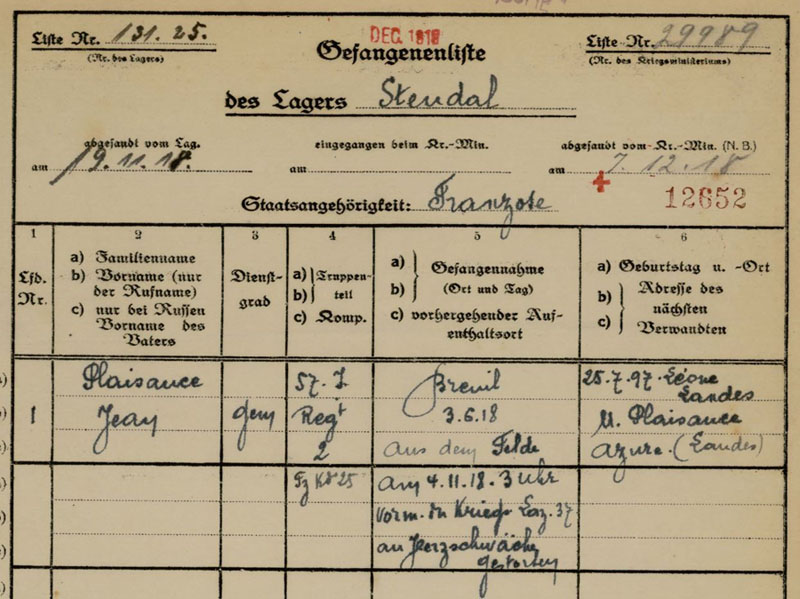 DEC. 1918
Liste Nr. 131.25.
(Nr. des Lagers)
Gefangenenliste
Liste-Nr. 29989
(Nr. des Kriegsministeriums)
des Lagers Stendal
abgesandt vom Lag.
am 19.11.18.
eingegangen beim Kr.-Min.
am
abgesandt vom Kr.-Min. (N. B.)
am 7.12.18
12652
Staatsangehörigkeit: Franzose
1 2 3 4 5 6
Lfd. Nr.
a) Familienname
b) Vorname (nur der Rufname)
c) nur bei Russen Vorname des Vaters
Dienst-
grad
a) Truppen-
b) teil
c) Komp.
a) Gefangennahme
b) (Ort und Tag)
c) vorhergehender Auf-
enthaltsort
a) Geburtstag u. -Ort
b) Adresse des
nächsten
c) Verwandten
Plaisance 57. J Breuil 25.7.97. Léone
Landes
1 Jean gem Regt 3.6.18 M. Plaisance
2 aus dem Felde Azure. (Landes)
am 4.11.18. 3 Uhr
vorm. im Kriegs Laz. 37
an Herzschwäche
gestorben